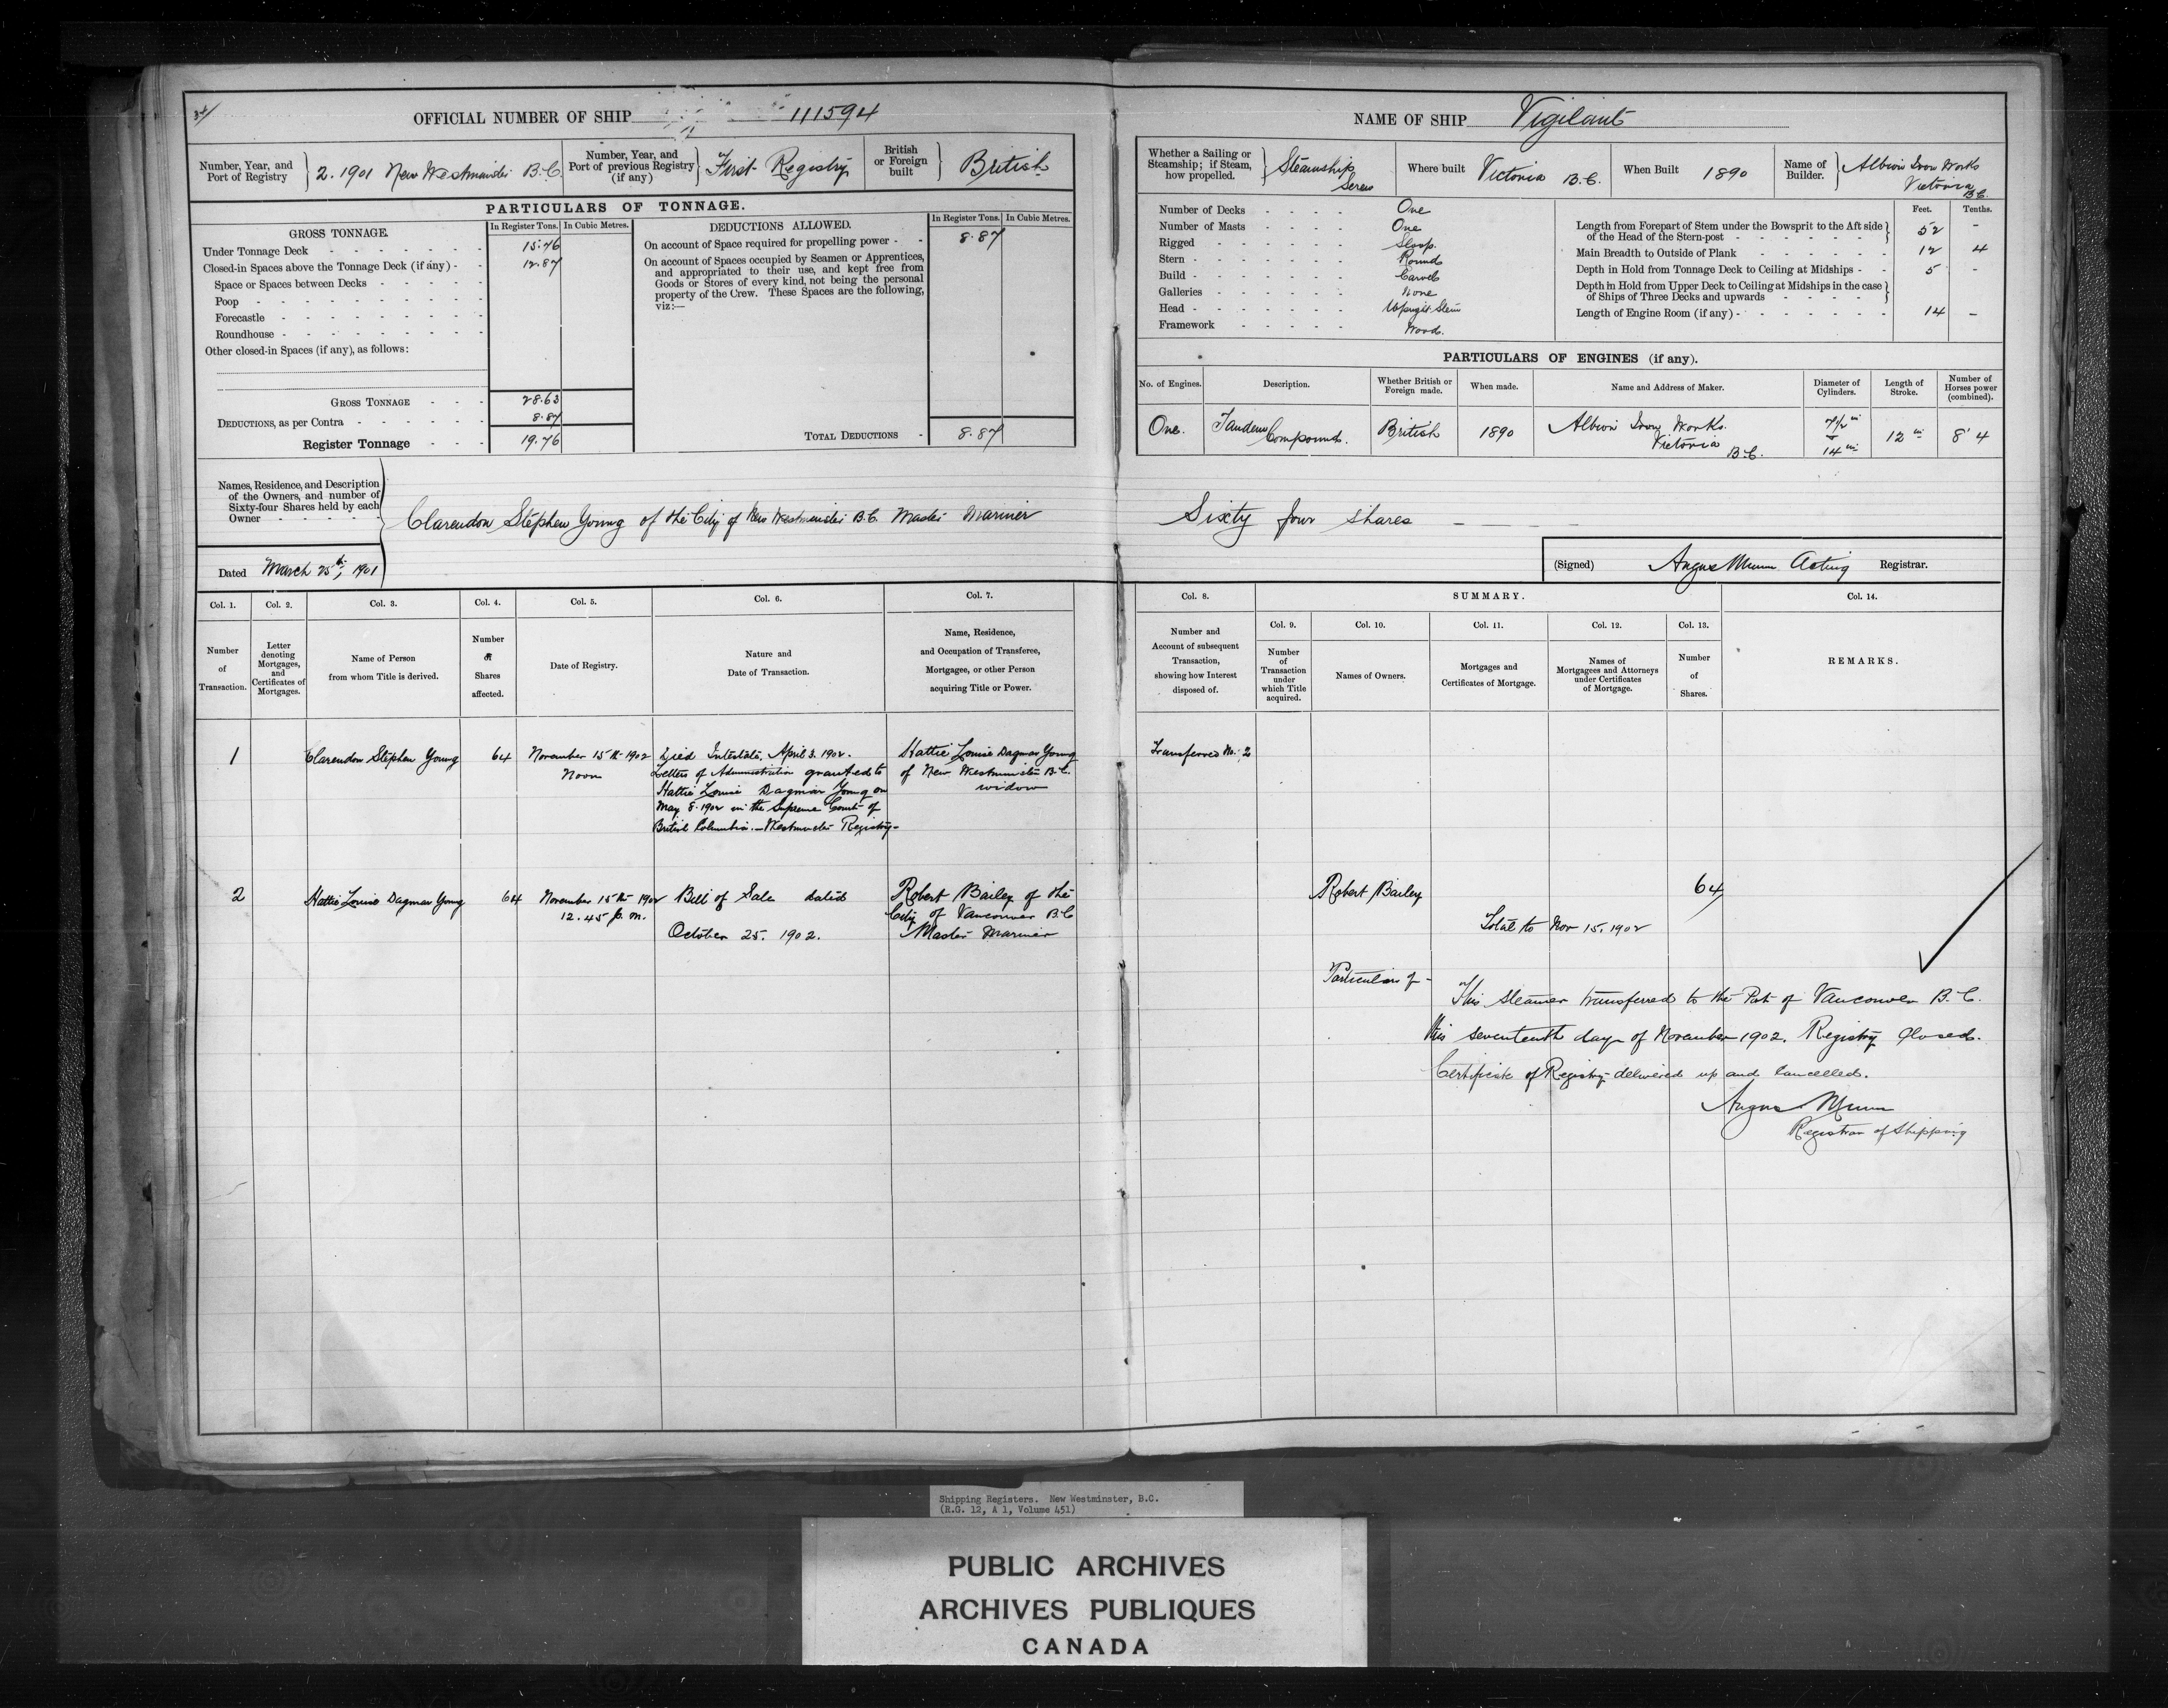 OFFICIAL NUMBER OF SHIP 111594
Number, Year, and Port of Registry 2. 1901 New Westminster B.C.
Number, Year, and Port of previous Registry (if any) First Registry
British or Foreign built British
PARTICULARS OF TONNAGE.
GROSS TONNAGE.
In Register Tons. In Cubic Metres.
Under Tonnage Deck 15.76
Closed-in Spaces above the Tonnage Deck (if any) 12.87
Space or Spaces between Decks
Poop
Forecastle
Roundhouse
Other closed-in Spaces (if any), as follows:
GROSS TONNAGE 28.63
DEDUCTIONS, as per Contra 8.87
Register Tonnage 19.76
DEDUCTIONS ALLOWED.
In Register Tons. In Cubic Metres.
On account of Space required for propelling power 8.87
On account of Spaces occupied by Seamen or Apprentices,
and appropriated to their use, and kept free from
Goods or Stores of every kind, not being the personal
property of the Crew. These Spaces are the following,
viz:—
TOTAL DEDUCTIONS 8.87
NAME OF SHIP Vigilant
Whether a Sailing or Steamship; if Steam, how propelled. Steamship Screw
Where built Victoria B.C.
When Built 1890
Name of Builder. Albion Iron Works Victoria B.C.
Number of Decks One
Number of Masts One
Rigged Sloop
Stern Round
Build Carvel
Galleries None
Head Upright Stem
Framework Wood.
Feet. Tenths.
Length from Forepart of Stem under the Bowsprit to the Aft side
of the Head of the Stern-post 52 -
Main Breadth to Outside of Plank 12 4
Depth in Hold from Tonnage Deck to Ceiling at Midships 5 -
Depth in Hold from Upper Deck to Ceiling at Midships in the case
of Ships of Three Decks and upwards
Length of Engine Room (if any) 14 -
PARTICULARS OF ENGINES (if any).
No. of Engines. Description. Whether British or Foreign made. When made. Name and Address of Maker. Diameter of Cylinders. Length of Stroke. Number of Horses power (combined).
One. Tandem Compound. British 1890 Albion Iron Works. Victoria B.C. 7½ in 14 in 12 in 8.4
Names, Residence, and Description
of the Owners, and number of
Sixty-four Shares held by each
Owner
Clarendon Stephen Young of the City of New Westminster B.C. Master Mariner Sixty four shares
Dated March 25th, 1901
(Signed) Angus Munn Acting Registrar.
Col. 1. Col. 2. Col. 3. Col. 4. Col. 5. Col. 6. Col. 7. Col. 8. SUMMARY. Col. 14.
Col. 9. Col. 10. Col. 11. Col. 12. Col. 13.
Number of Transaction.
Letter denoting Mortgages, and Certificates of Mortgages.
Name of Person from whom Title is derived.
Number of Shares affected.
Date of Registry.
Nature and Date of Transaction.
Name, Residence, and Occupation of Transferee, Mortgagee, or other Person acquiring Title or Power.
Number and Account of subsequent Transaction, showing how Interest disposed of.
Number of Transaction under which Title acquired.
Names of Owners.
Mortgages and Certificates of Mortgage.
Names of Mortgagees and Attorneys under Certificates of Mortgage.
Number of Shares.
REMARKS.
1 Clarendon Stephen Young 64 November 15th 1902 Noon
Died Intestate. April 3. 1902.
Letters of Administration granted to
Hattie Louise Dagmar Young on
May 8. 1902 in the Supreme Court of
British Columbia. — Westminster Registry —
Hattie Louise Dagmar Young
of New Westminster B.C.
widow
Transferred No. 2
2 Hattie Louise Dagmar Young 64 November 15th 1902
12.45 p.m.
Bill of Sale dated
October 25. 1902.
Robert Bailey of the
City of Vancouver B.C
Master Mariner
Robert Bailey 64
Total to Nov 15. 1902
Particulars of -
This steamer transferred to the Port of Vancouver B.C.
this seventeenth day of November 1902. Registry Closed.
Certificate of Registry delivered up and cancelled.
Angus Munn
Registrar of Shipping
Shipping Registers. New Westminster, B.C.
(R.G. 12, A 1, Volume 451)
PUBLIC ARCHIVES
ARCHIVES PUBLIQUES
CANADA